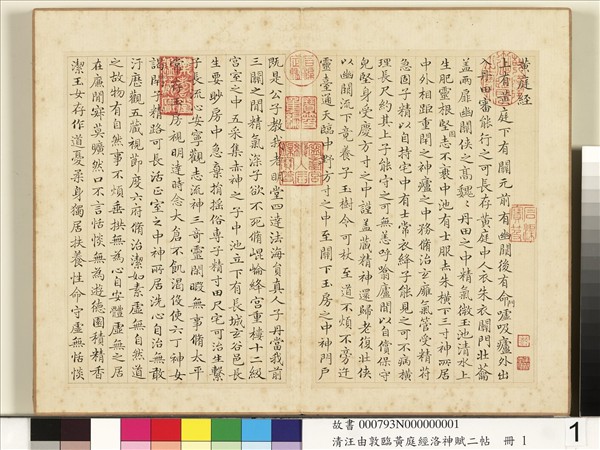 黃庭經
上有黃庭下有關元前有幽關後有命噓吸廬外出
入丹田審能行之可長存黃庭中人衣朱衣關門壯蘥
蓋兩扉幽關俠之高巍巍丹田之中精氣微玉池清水上
生肥靈根堅志不衰中池有士服赤朱橫下三寸神所居
中外相距重閉之神廬之中務脩治玄廱氣管受精符
急固子精以自持宅中有士常衣絳子能見之可不病橫
理長尺約其上子能守之可無恙呼噏廬間以自償保守
貌堅身受慶方寸之中謹蓋藏精神還歸老復壯俠
以幽關流下竟養子玉樹令可杖至道不煩不旁迕
靈臺通天臨中野方寸之中至關下玉房之中神門戶
既是公子教我者明堂四達法海員真人子丹當我前
三關之間精氣深子欲不死脩崐崘絳宮重樓十二級
宮室之中五采集赤神之子中池立下有長城玄谷邑長
生要眇房中急棄捐搖俗專子精寸田尺宅可治生繫
子長流心安寧觀志流神三奇靈閑暇無事脩太平
常存玉房視明達時念大倉不飢渴役使六丁神女
謁閉子精路可長活正室之中神所居洗心自治無敢
汙歷觀五藏視節度六府脩治潔如素虛無自然道
之故物有自然事不煩垂拱無為心自安體虛無之居
在廉間寂莫曠然口不言恬惔無為遊德園積精香
潔玉女存作道憂柔身獨居扶養性命守虛無恬惔
故書 000793N000000001
清汪由敦臨黃庭經洛神賦二帖 冊 1
1